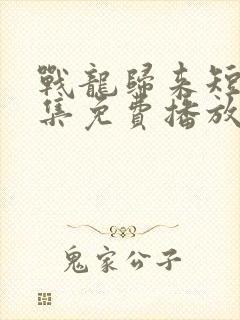 戰龍歸来短
集免費播放
鬼家公子